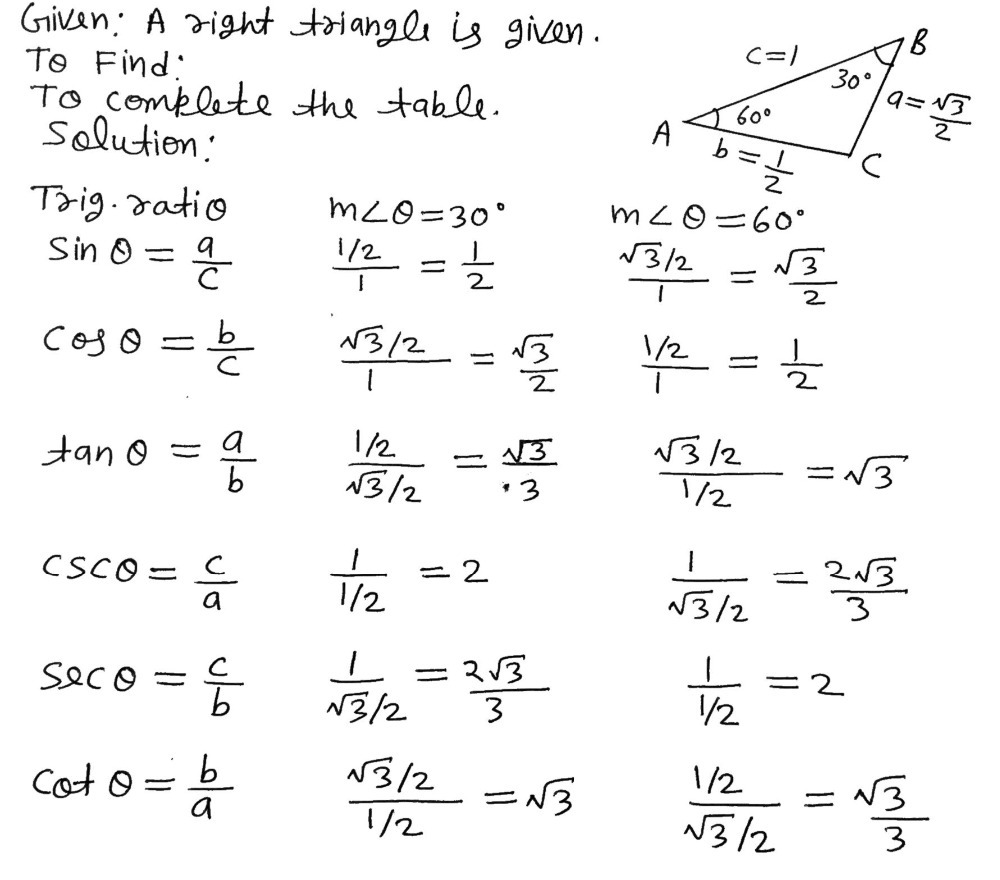 Given: A right triangle is given.
To Find:
To complete the table.
Solution:
c=1
B
30°
a=√3/2
A
60°
b=1/2
C
Trig. ratio m∠θ=30° m∠θ=60°
Sin θ = a/c (1/2)/1 = 1/2 (√3/2)/1 = √3/2
Cos θ = b/c (√3/2)/1 = √3/2 (1/2)/1 = 1/2
tan θ = a/b (1/2)/(√3/2) = √3/3 (√3/2)/(1/2) = √3
CSC θ = c/a 1/(1/2) = 2 1/(√3/2) = 2√3/3
Sec θ = c/b 1/(√3/2) = 2√3/3 1/(1/2) = 2
Cot θ = b/a (√3/2)/(1/2) = √3 (1/2)/(√3/2) = √3/3